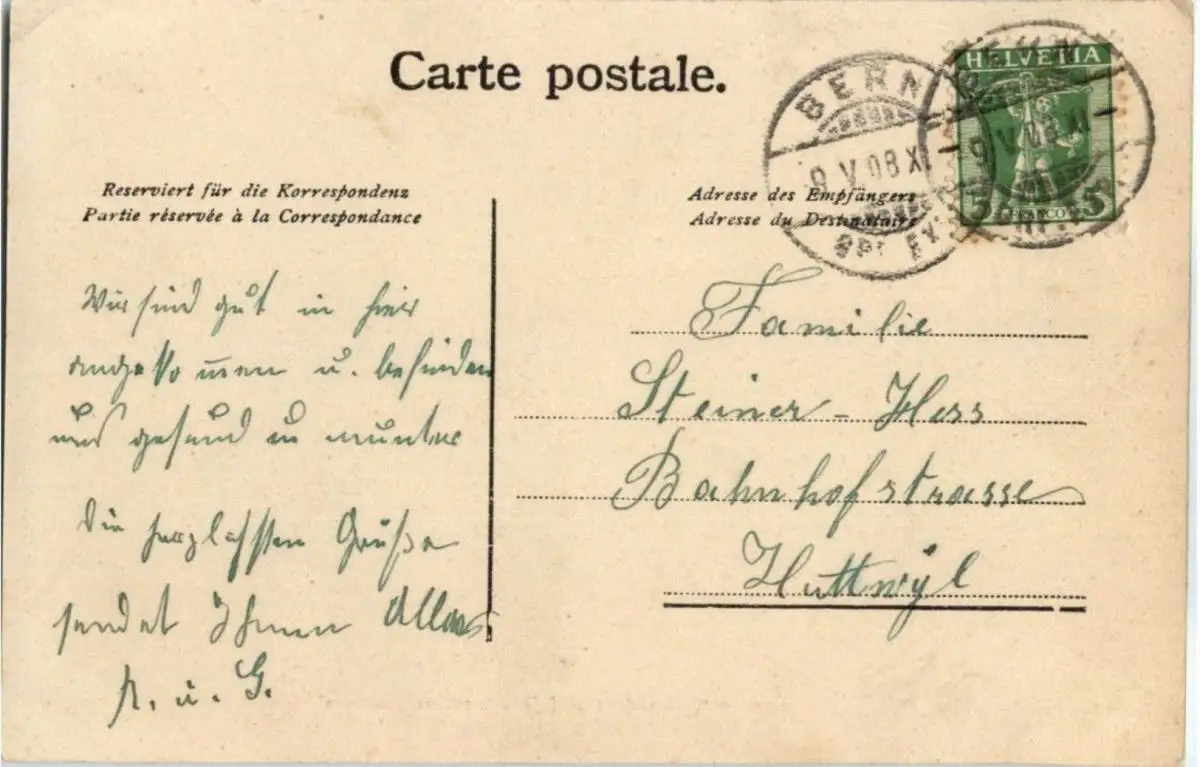 Carte postale.
Reserviert für die Korrespondenz
Partie réservée à la Correspondance
Adresse des Empfängers
Adresse du Destinataire
HELVETIA
5 FRANCO 5
BERN
9 V 08 XI
Wir sind gut in hier
angekommen u. befinden
uns gesund u munter
Die herzlichsten Grüße
sendet Ihnen Allen
u. G.
Familie
Steiner - Hess
Bahnhofstrasse
Huttwÿl